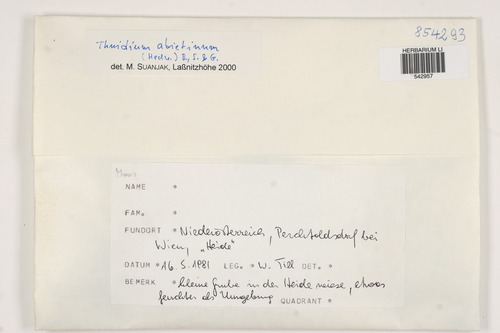 Thuidium abietinum
(Hedw.) B, S. & G.
det. M. SUANJAK, Laßnitzhöhe 2000
854293
HERBARIUM LI
542957
Moos
NAME *
FAM. *
FUNDORT * Niederösterreich, Perchtoldsdorf bei
Wien, „Heide"
DATUM * 16. 5. 1981 LEG. * W. Till DET. *
BEMERK * kleine Grube in der Heidewiese, etwas
feuchter als Umgebung QUADRANT *